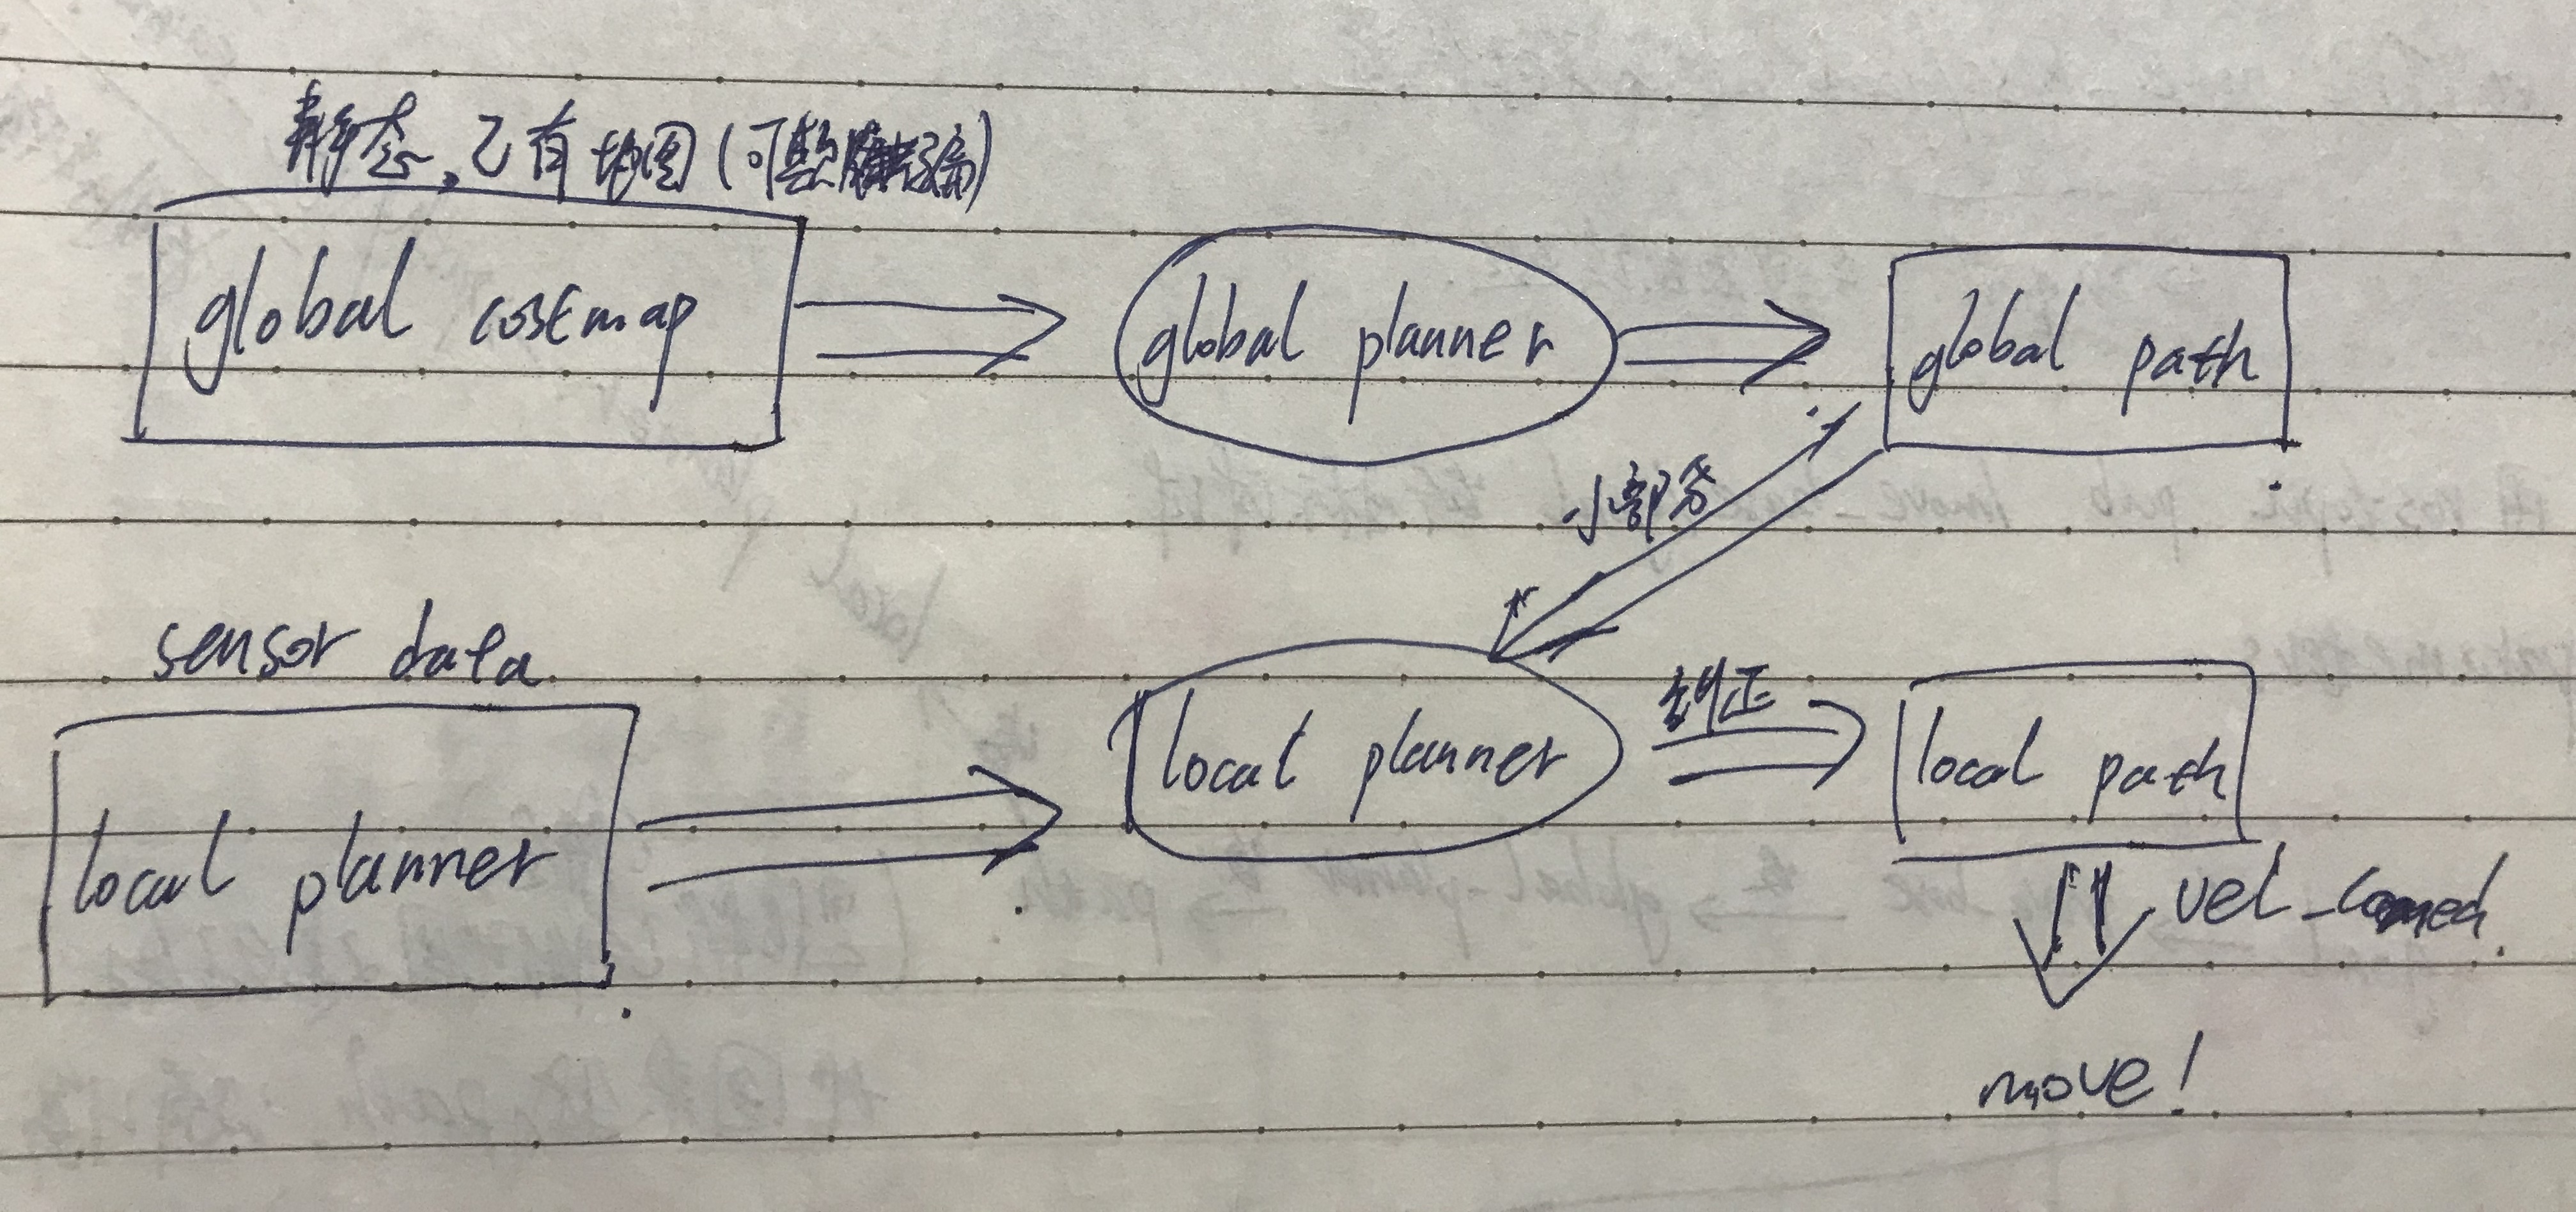 静态,已有地图(可欺骗)
global costmap
global planner
global path
小部分
sensor data
local planner
local planner
纠正
local path
move!